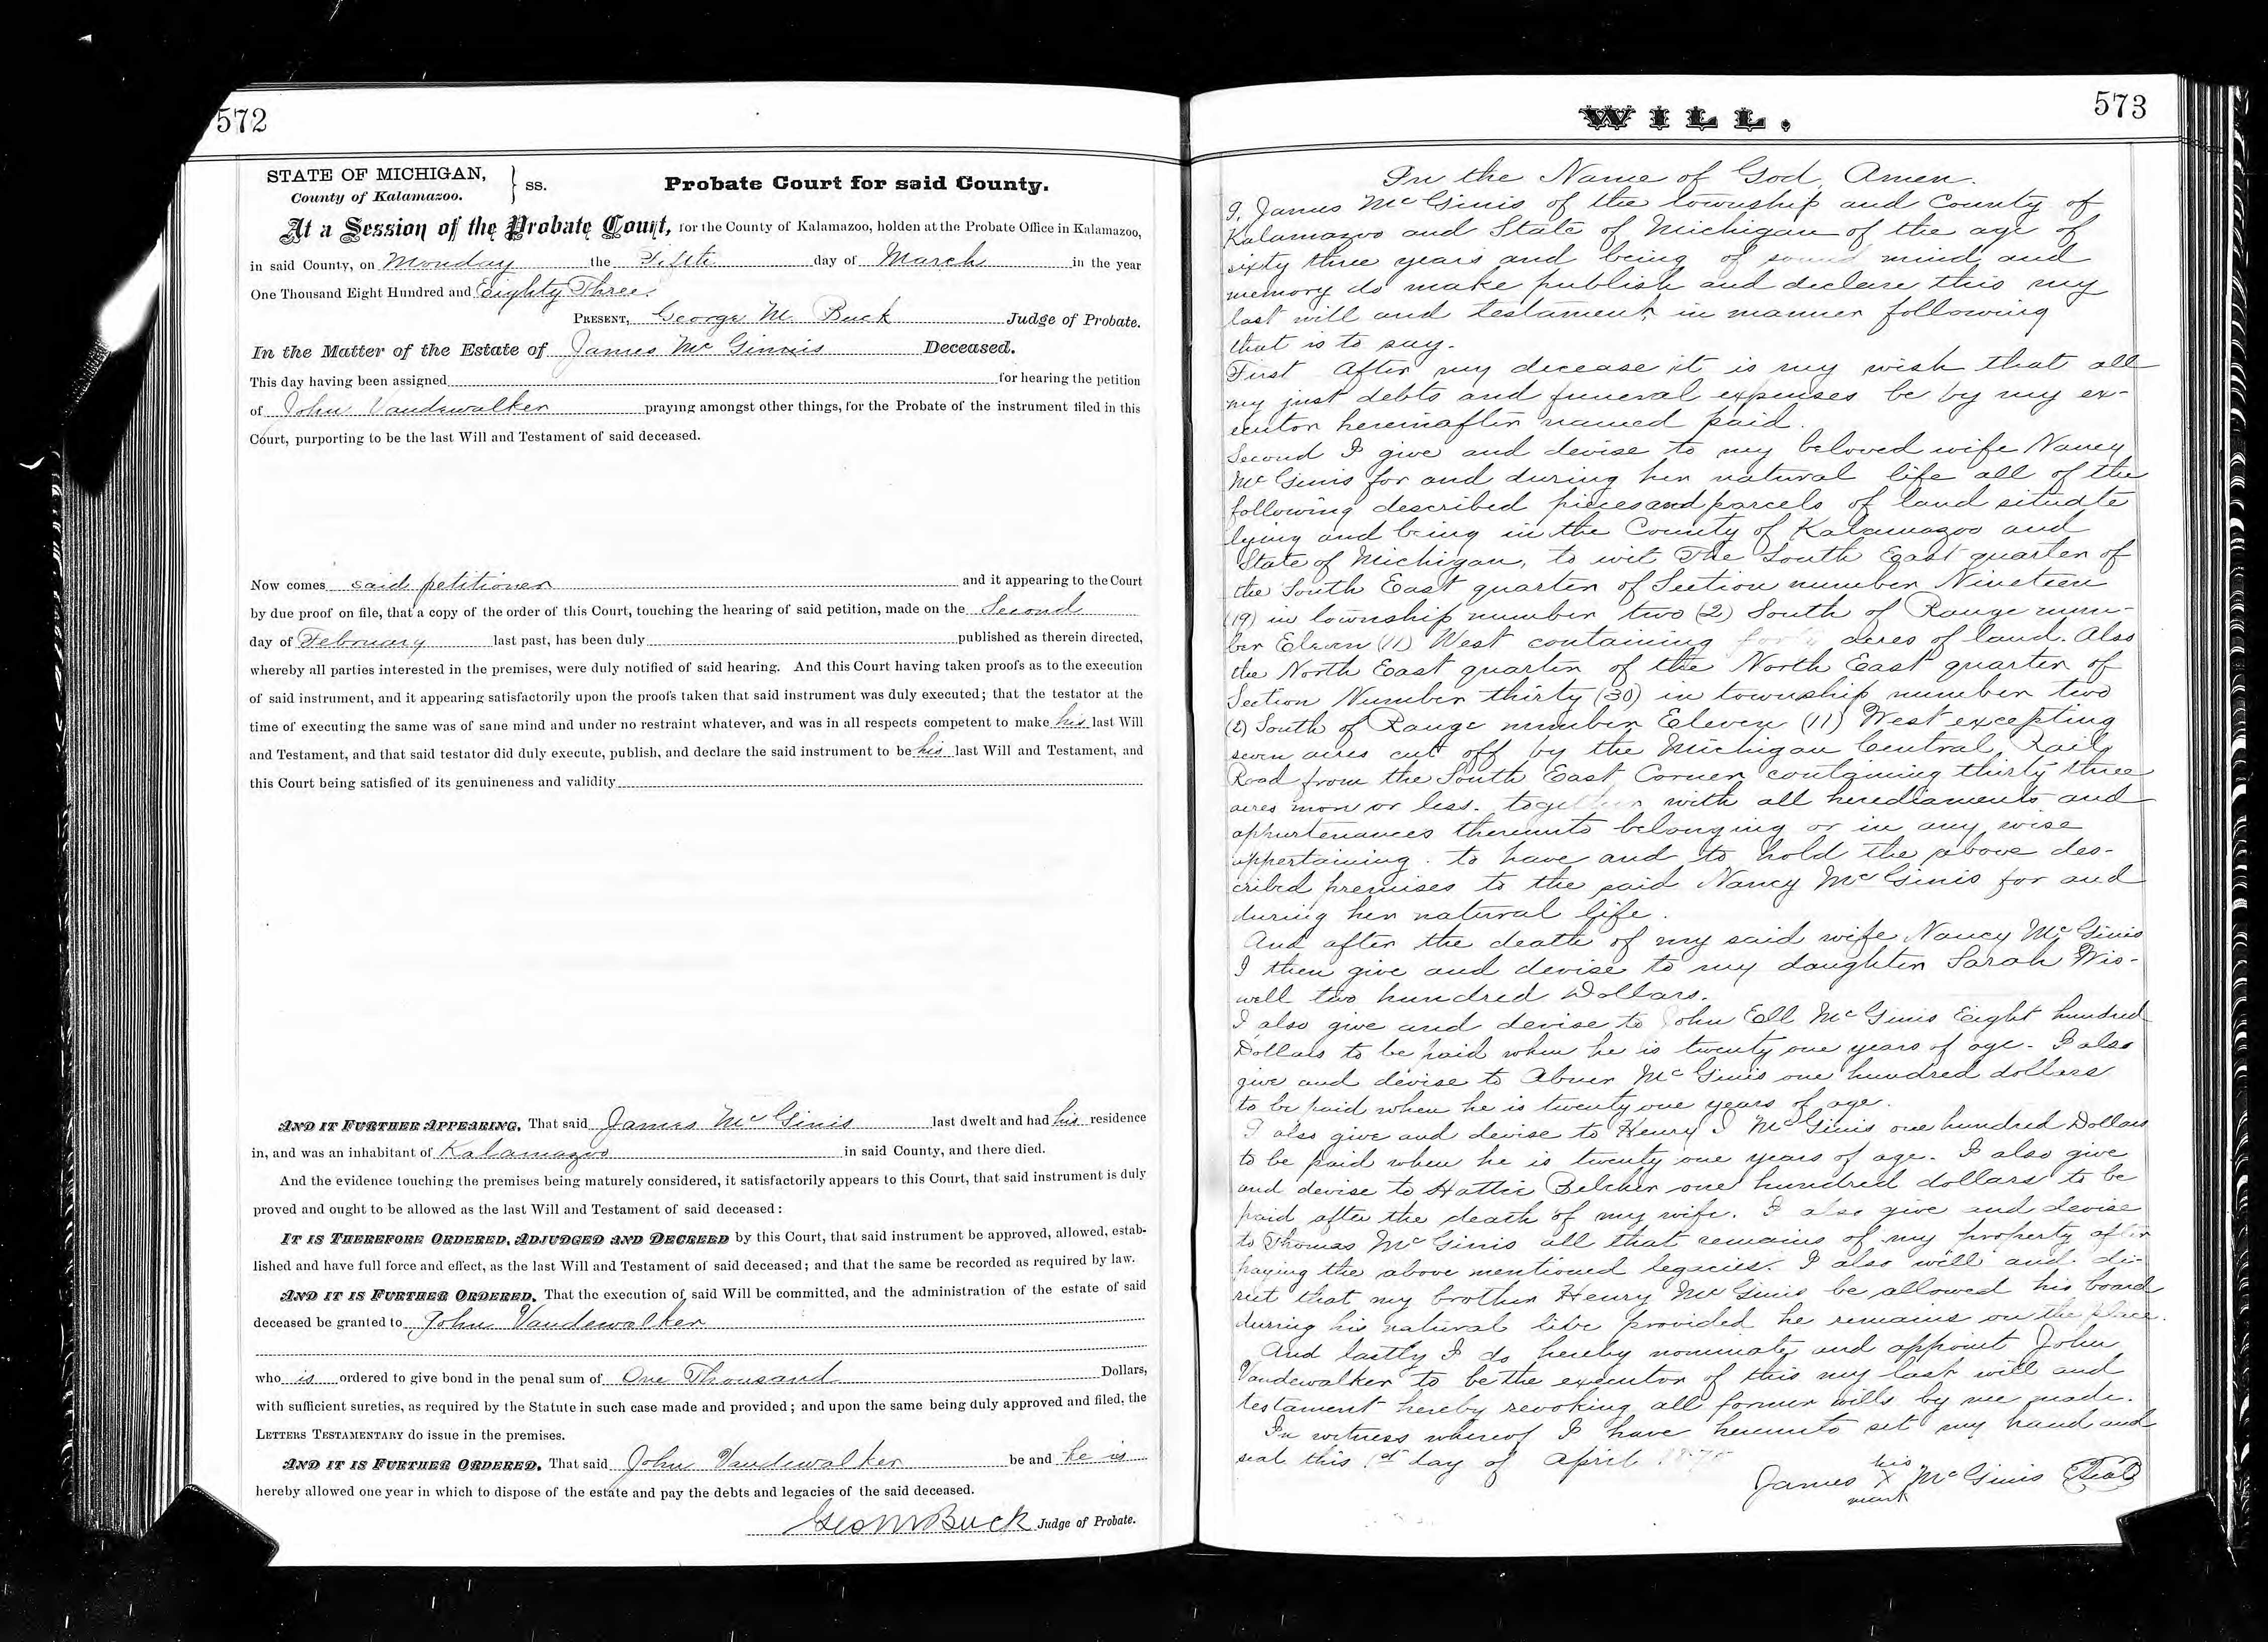 572
STATE OF MICHIGAN,
County of Kalamazoo.
} ss.
Probate Court for said County.
At a Session of the Probate Court, for the County of Kalamazoo, holden at the Probate Office in Kalamazoo,
in said County, on Monday the Fifth day of March in the year
One Thousand Eight Hundred and Eighty Three.
PRESENT, George M. Buck Judge of Probate.
In the Matter of the Estate of James Mc Ginnis Deceased.
This day having been assigned for hearing the petition
of John Vandewalker praying amongst other things, for the Probate of the instrument filed in this
Court, purporting to be the last Will and Testament of said deceased.
Now comes said petitioner and it appearing to the Court
by due proof on file, that a copy of the order of this Court, touching the hearing of said petition, made on the Second
day of February last past, has been duly published as therein directed,
whereby all parties interested in the premises, were duly notified of said hearing. And this Court having taken proofs as to the execution
of said instrument, and it appearing satisfactorily upon the proofs taken that said instrument was duly executed; that the testator at the
time of executing the same was of sane mind and under no restraint whatever, and was in all respects competent to make his last Will
and Testament, and that said testator did duly execute, publish, and declare the said instrument to be his last Will and Testament, and
this Court being satisfied of its genuineness and validity
AND IT FURTHER APPEARING, That said James McGinis last dwelt and had his residence
in, and was an inhabitant of Kalamazoo in said County, and there died.
And the evidence touching the premises being maturely considered, it satisfactorily appears to this Court, that said instrument is duly
proved and ought to be allowed as the last Will and Testament of said deceased:
IT IS THEREFORE ORDERED, ADJUDGED AND DECREED by this Court, that said instrument be approved, allowed, estab-
lished and have full force and effect, as the last Will and Testament of said deceased; and that the same be recorded as required by law.
AND IT IS FURTHER ORDERED, That the execution of said Will be committed, and the administration of the estate of said
deceased be granted to John Vandewalker
who is ordered to give bond in the penal sum of One Thousand Dollars,
with sufficient sureties, as required by the Statute in such case made and provided; and upon the same being duly approved and filed, the
LETTERS TESTAMENTARY do issue in the premises.
AND IT IS FURTHER ORDERED, That said John Vandewalker be and he is
hereby allowed one year in which to dispose of the estate and pay the debts and legacies of the said deceased.
Geo M Buck Judge of Probate.
WILL.
573
In the Name of God, Amen.
I, James McGinis of the township and County of
Kalamazoo and State of Michigan of the age of
sixty three years and being of sound mind and
memory do make publish and declare this my
last will and testament, in manner following
that is to say.
First After my decease it is my wish that all
my just debts and funeral expenses be by my ex-
ecutor hereinafter named paid.
Second I give and devise to my beloved wife Nancy
McGinis for and during her natural life all of the
following described pieces and parcels of land situate
lying and being in the County of Kalamazoo and
State of Michigan, to wit The South East quarter of
the South East quarter of Section number Nineteen
(19) in township number two (2) South of Range num-
ber Eleven (11) West containing forty acres of land. Also
the North East quarter of the North East quarter of
Section Number thirty (30) in township number two
(2) South of Range number Eleven (11) West excepting
seven acres cut off by the Michigan Central Rail
Road from the South East Corner containing thirty three
acres more or less. together with all herediaments and
appurtenances thereunto belonging or in any wise
appertaining. to have and to hold the above des-
cribed premises to the said Nancy McGinis for and
during her natural life.
And after the death of my said wife Nancy McGinis
I then give and devise to my daughter Sarah Wis-
well two hundred Dollars.
I also give and devise to John Ell McGinis Eight hundred
Dollars to be paid when he is twenty one years of age. I also
give and devise to Abner McGinis one hundred dollars
to be paid when he is twenty one years of age.
I also give and devise to Henry I McGinis one hundred Dollars
to be paid when he is twenty one years of age. I also give
and devise to Hattie Belcher one hundred dollars to be
paid after the death of my wife. I also give and devise
to Thomas McGinis all that remains of my property after
paying the above mentioned legacies. I also will and di-
rect that my brother Henry McGinis be allowed his board
during his natural life provided he remains on the place.
And lastly I do hereby nominate and appoint John
Vandewalker to be the executor of this my last will and
testament hereby revoking all former wills by me made.
In witness whereof I have hereunto set my hand and
seal this 1st day of April
his
James X McGinis (Seal)
mark